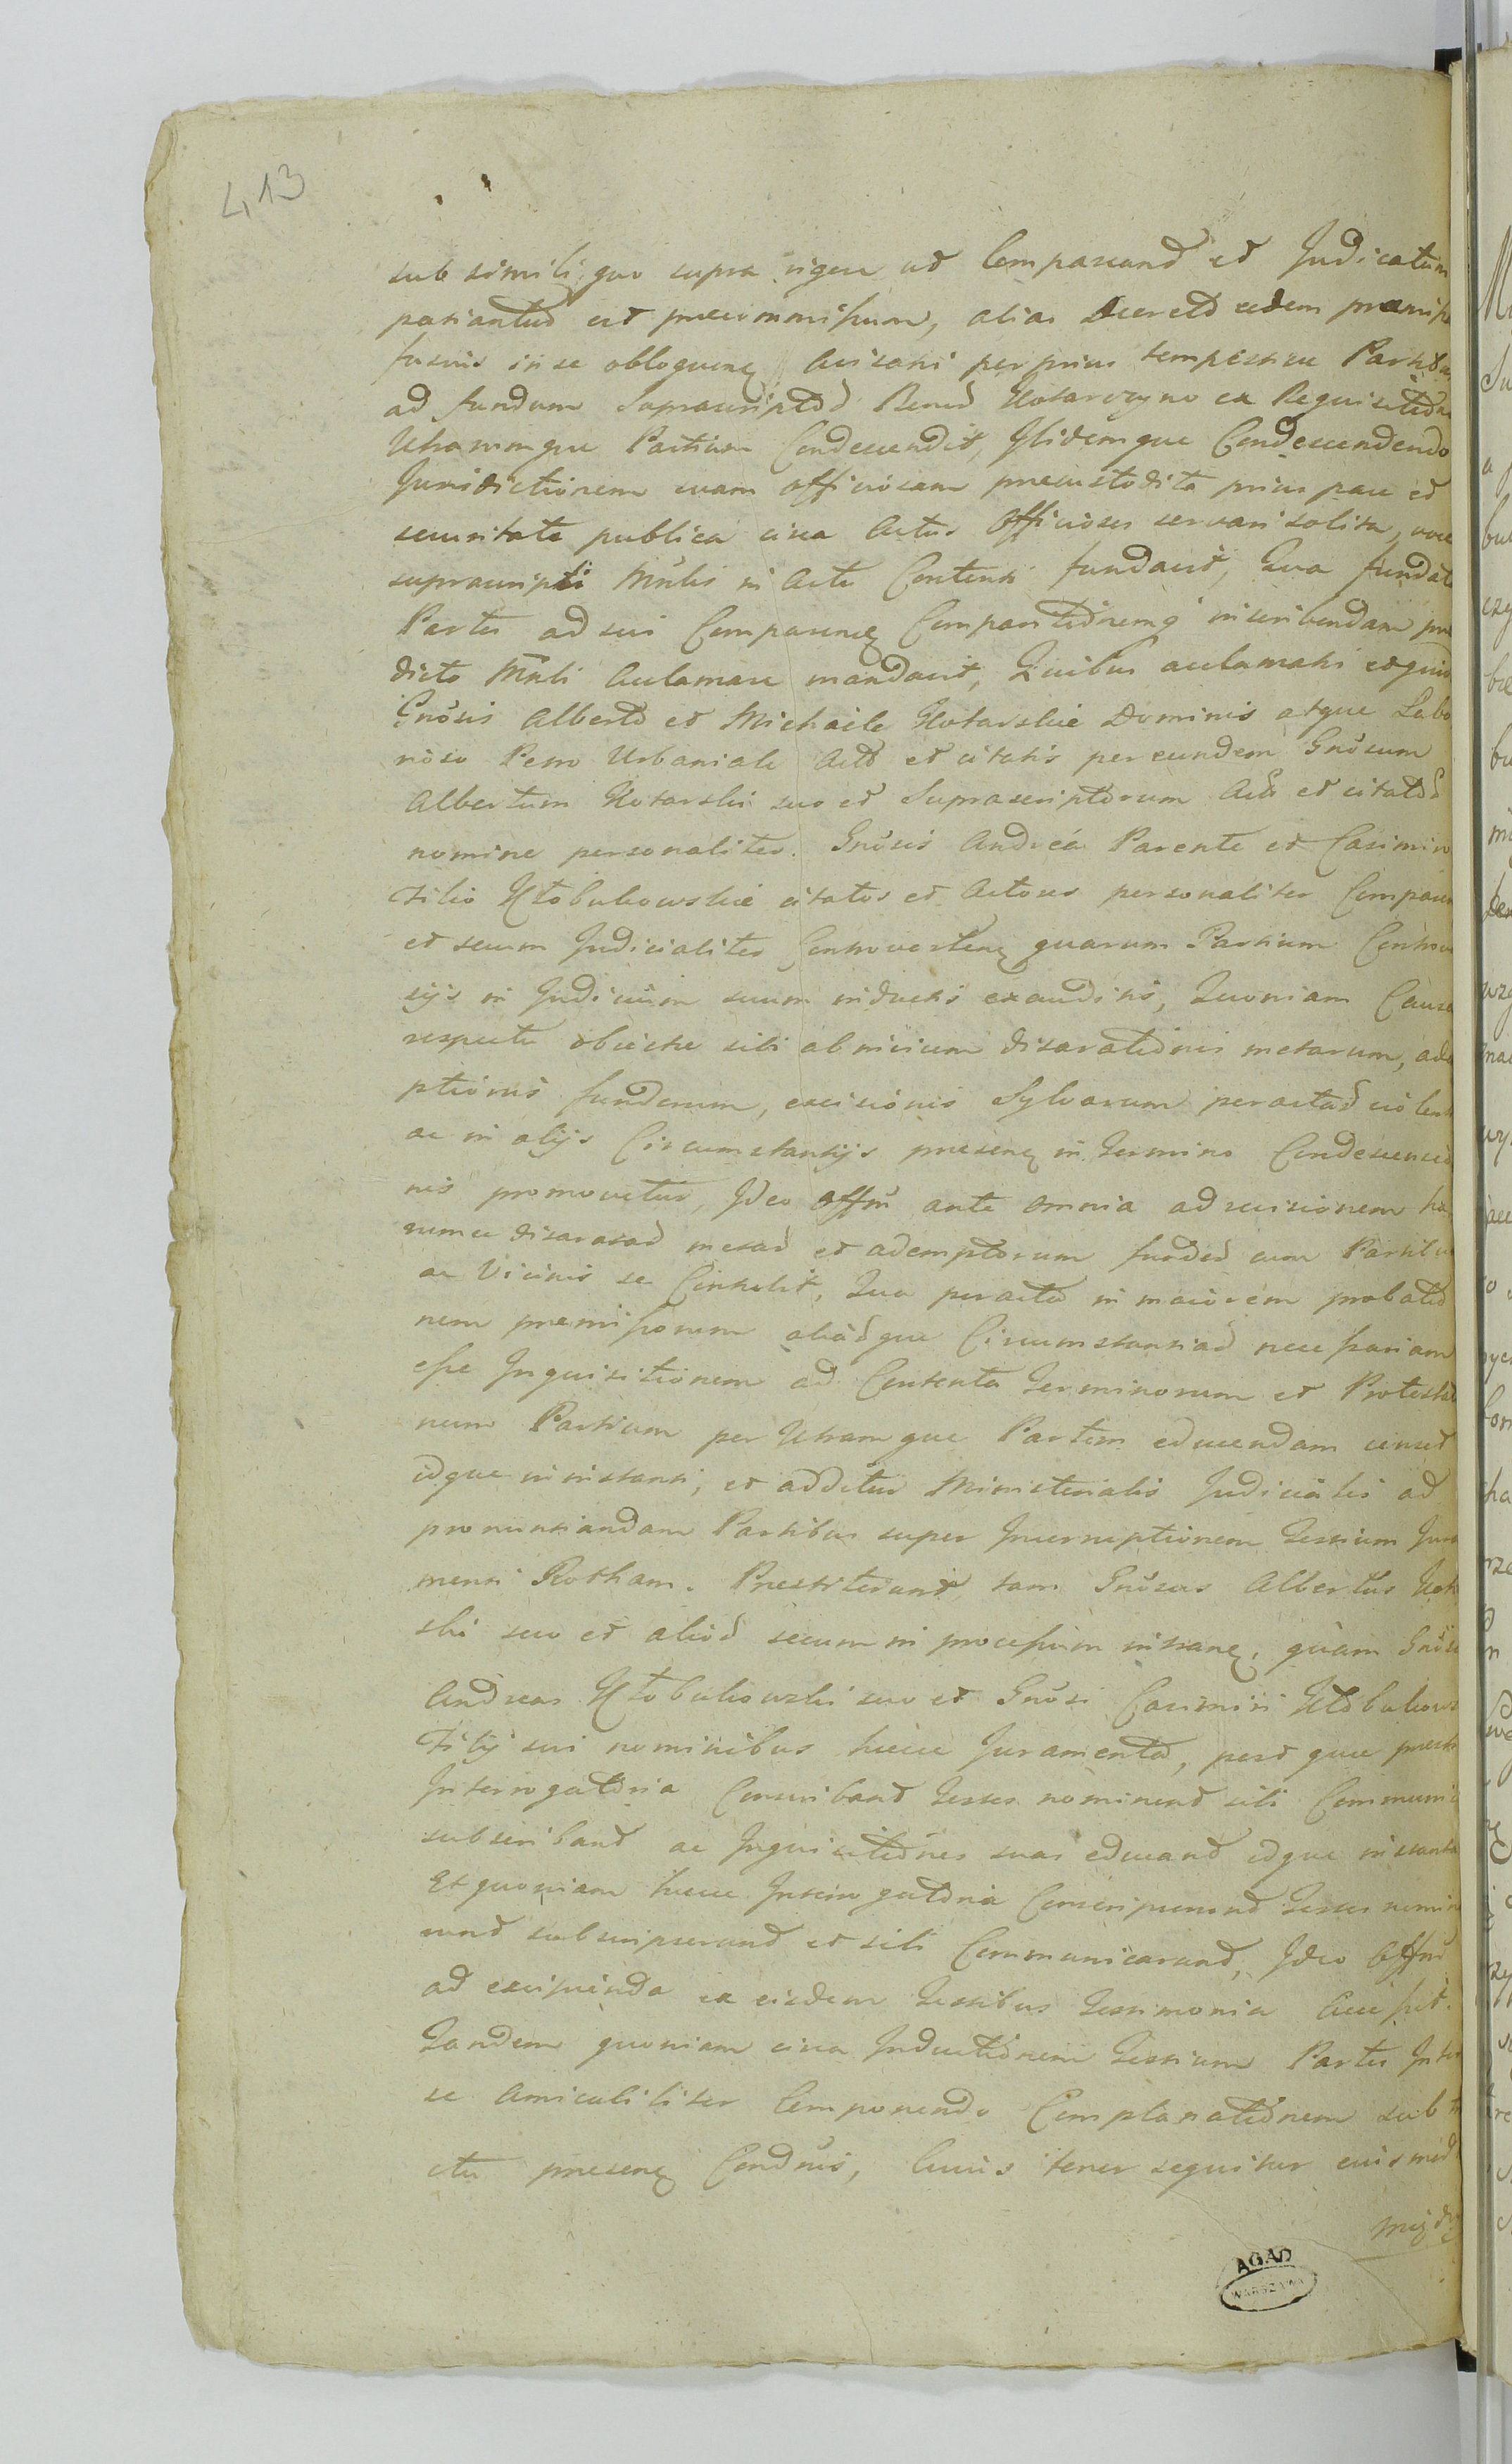 413
sub simili quo supra rigore ut Compareand et Judicatum
patiantud est precommissum, alias Decretd eidem premisso
in se obloquenq avisatis per prius tempestive Partibus
ad fundum Suprascriptod Bonod Kotarczyno ex Requisitione
Utrarumque Partium Condescendit, Ibidemque Condescendendo
Jurisdictionem suam officiosam precustodita prius pace et
securitate publica circa Actus Officiosos servari solita, voce
suprascripti Mnlis in Actu Contenti fundavit, Qua fundata
Partes ad sui Comparenq Comparitionemq inscribendam pre
dicto Mnli Acclamare mandavit, Quibus acclamatis
Gnosis Alberto et Michaele Kotarskie Dominis atque Labo
rioso Petro Urbaniak Actd et citatis per eundem Gnosum
Albertum Kotarski suo et Suprascriptorum Actd et citatod
nomine personaliter. Gnosis Andrea Parente et Casimiro
Filio Kłobukowskie citatos et Actores personaliter Comparen
et secum Judicialiter Controverteng quarum Partium Controver
sijs in Judicium suum inductis exauditis, Quoniam Causa
respectu obiectae sibi ab invicem disarationis metarum, adem
ptionis fundorum, excisionis Sylvarum peractad violen
ac in alijs Circumstantijs presenq in Termino Condescensio
nis promovetur, Ideo Offm ante omnia ad revisionem ha
rumce disaratad metad et ademptorum fundod cum Partibus
ac Vicinis se Contulit, Qua peracta in maiorem probatio
nem premissorum aliadque Circumstantiad necessariam
esse Inquisitionem ad Contenta Terminorum et Protestatio
num Partium per Utramque Partem educendam censet
idque in instanti, et additur Ministerialis Judicialis ad
pronuntiandam Partibus super Incorruptionem Testium Jura
menti Rotham. Prestiterunt tam Gnosus Albertus Kotar
ski suo et aliod secum in processum intranq, quam Gnosus
Andreas Kłobukowski suo et Gnosi Casimiri Kłobukows
Filij sui nominibus hicce Juramentd, post que prestita
Interrogatoria Conscriband Testes nominend sibi Communic
subscriband ac Inquisitiones suas educand idque in instanti
Et quoniam hicce Interrogatoria Conscripserund Testes nomina
rund subscripserund et sibi Communicarund, Ideo Offm
ad excipienda ex eisdem Testibus Testimonia Accessit.
Tandem quoniam circa Inductionem Testium Partes Inter
se Amicabiliter Componendo Complanationem sub
ctu presenq Condnis, Cuius tenor sequitur eiusmod
Między
AGAD
WARSZAWA